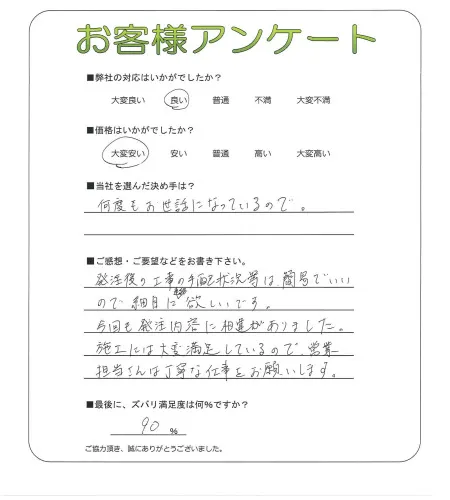 お客様アンケート
■弊社の対応はいかがでしたか？
大変良い 良い 普通 不満 大変不満
■価格はいかがでしたか？
大変安い 安い 普通 高い 大変高い
■当社を選んだ決め手は？
何度もお世話になっているので。
■ご感想・ご要望などをお書き下さい。
発注後の工事の手配状況等は、簡易でいい
ので細目に 欲しいです。
今回も発注内容に相違がありました。
施工には大変満足しているので、営業
担当さんは丁寧な仕事をお願いします。
■最後に、ズバリ満足度は何%ですか？
90 %
ご協力頂き、誠にありがとうございました。